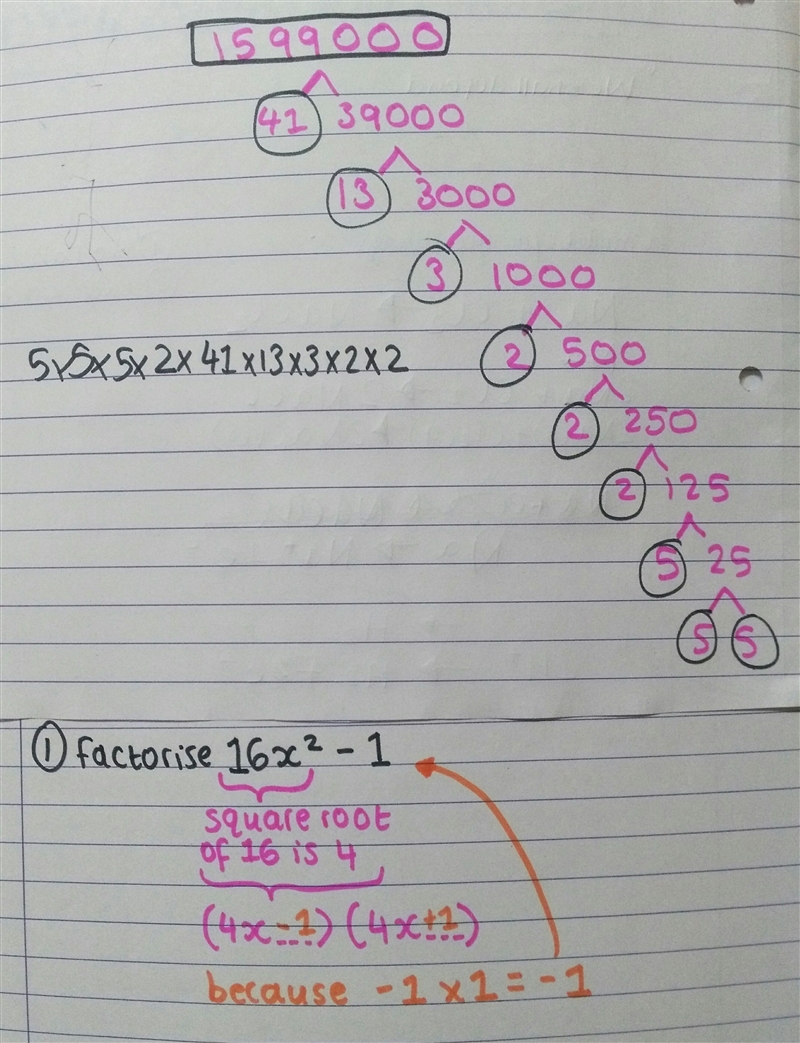 1599000
41 39000
13 3000
3 1000
5x5x5x2x41x13x3x2x2 2 500
2 250
2 125
5 25
5 5
① factorise 16x² - 1
square root
of 16 is 4
(4x-1)(4x+1)
because -1 x 1 = -1